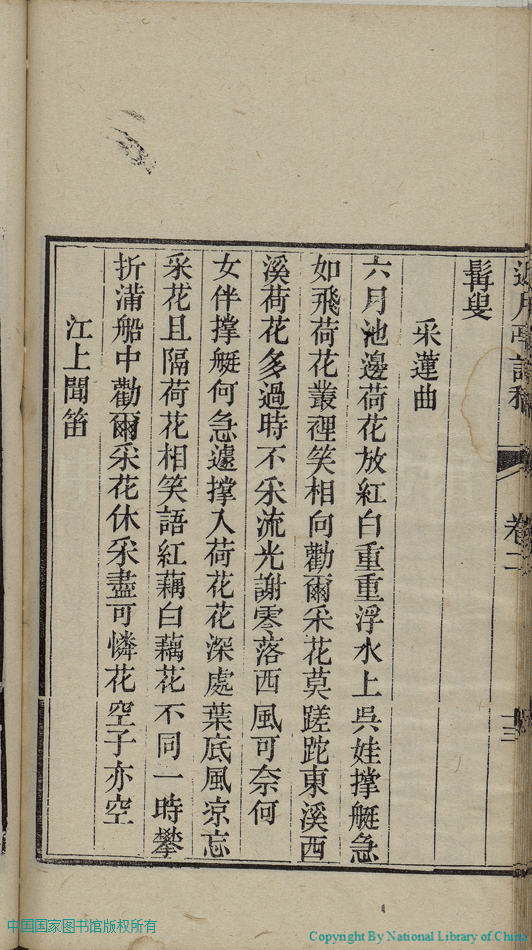 卷二
十三
髯叟
采蓮曲
六月池邊荷花放紅白重重浮水上吳娃撐艇急
如飛荷花叢裡笑相向勸爾采花莫蹉跎東溪西
溪荷花多過時不采流光謝零落西風可奈何
女伴撐艇何急遽撐入荷花花深處葉底風凉忘
采花且隔荷花相笑語紅藕白藕花不同一時攀
折滿船中勸爾采花休采盡可憐花空子亦空
江上聞笛
中国国家图书馆版权所有
Copyright By National Library of China